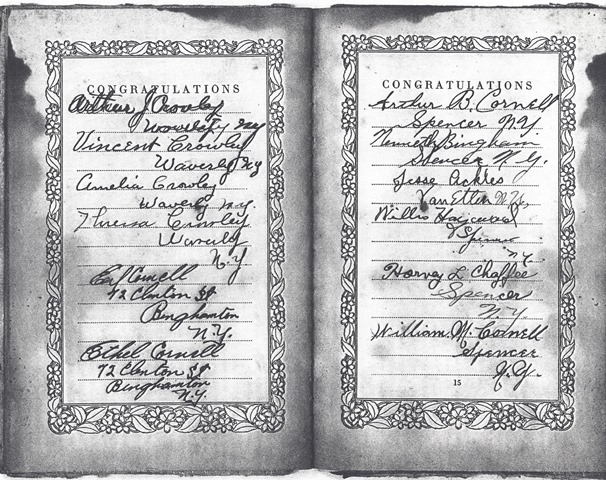 CONGRATULATIONS
Arthur J Crowley
Waverly NY
Vincent Crowley
Waverly Ny
Amelia Crowley
Waverly N.Y.
Theresa Crowley
Waverly
N.Y
Earl Cornell
72 Clinton St
Binghamton
N.Y.
Ethel Cornell
72 Clinton St
Binghamton
N.Y.
CONGRATULATIONS
Arthur B. Cornell
Spencer N.Y
Kenneth Bingham
Spencer N.Y.
Jesse Ackles
Van Etten N.Y.
Willis
Spencer
N.Y.
Harvey L Chaffee
Spencer
N.Y.
William M. Cornell
Spencer
N.Y.
15